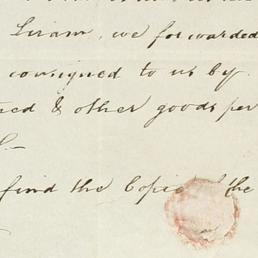 we forwarded
consigned to us by
& other goods per
find the Copie the